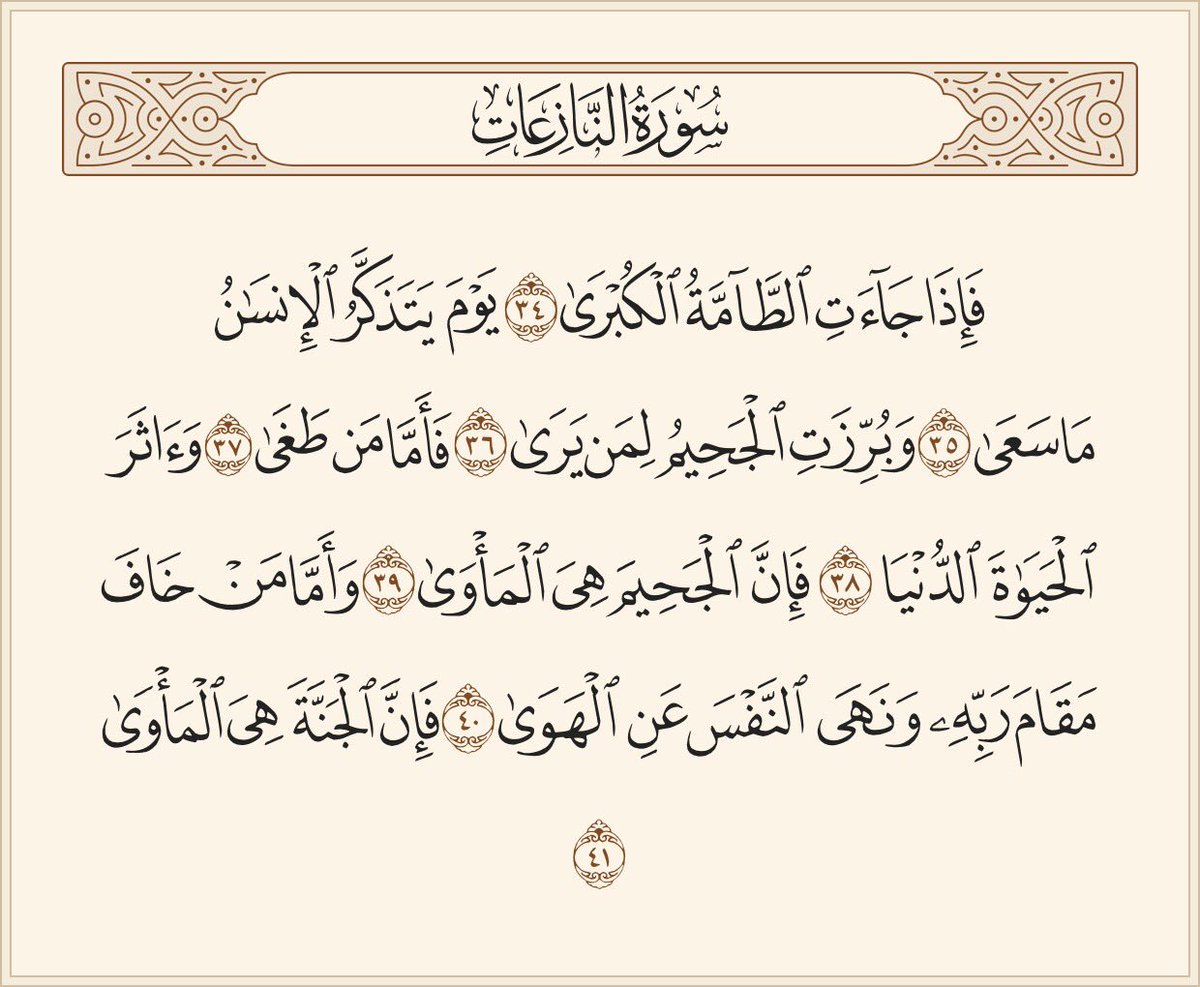 سُورَةُ النَّازِعَاتِ
فَإِذَا جَآءَتِ ٱلطَّآمَّةُ ٱلْكُبْرَىٰ ٣٤ يَوْمَ يَتَذَكَّرُ ٱلْإِنسَـٰنُ
مَا سَعَىٰ ٣٥ وَبُرِّزَتِ ٱلْجَحِيمُ لِمَن يَرَىٰ ٣٦ فَأَمَّا مَن طَغَىٰ ٣٧ وَءَاثَرَ
ٱلْحَيَوٰةَ ٱلدُّنْيَا ٣٨ فَإِنَّ ٱلْجَحِيمَ هِىَ ٱلْمَأْوَىٰ ٣٩ وَأَمَّا مَنْ خَافَ
مَقَامَ رَبِّهِۦ وَنَهَى ٱلنَّفْسَ عَنِ ٱلْهَوَىٰ ٤٠ فَإِنَّ ٱلْجَنَّةَ هِىَ ٱلْمَأْوَىٰ
٤١